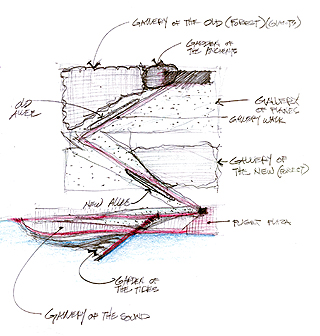 GALLERY OF THE OLD (FOREST) (GIANTS)
GARDEN OF
THE ANCIENTS
OLD
ALLEE
GALLERY
OF PLANES
GALLERY WALK
GALLERY OF
THE NEW (FOREST)
NEW ALLEE
PUGET PLAZA
GARDEN OF
THE TIDES
GALLERY OF THE SOUND